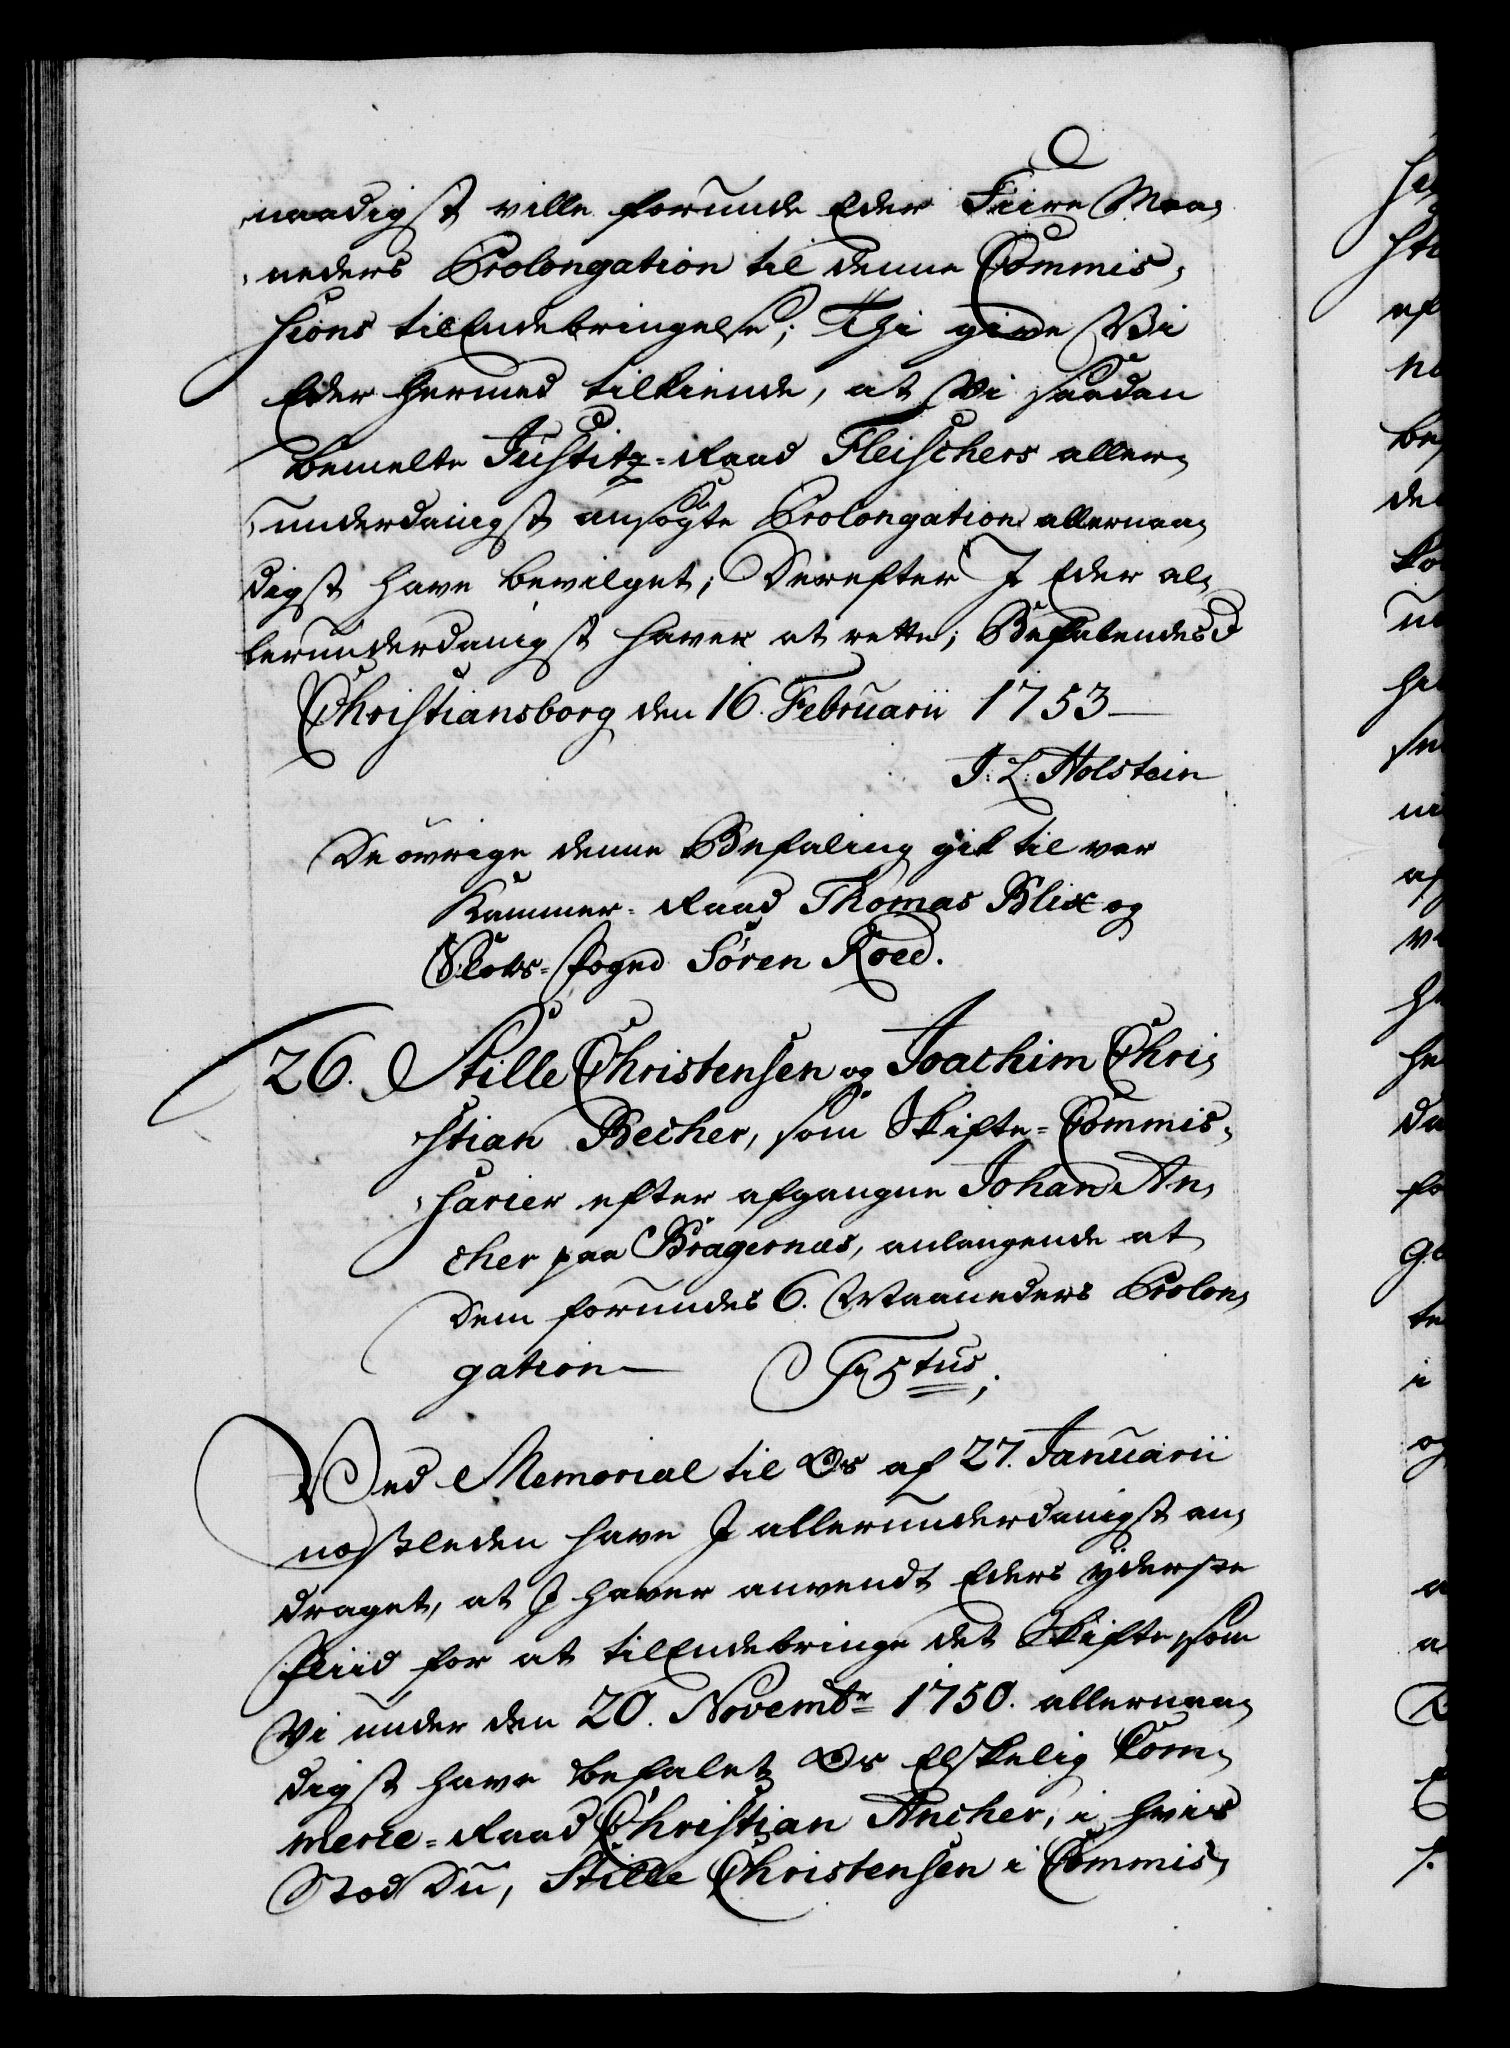 naadigst ville forunde Eder Fiire Maa¬
neders Prolongation til denne Commis¬
sions tilEndebringelse; Thi give Vi
Eder hermed tilkiende, at Vi saadan
bemelte Justitz-Raad Fleischers aller¬
underdanigst ansøgte Prolongation allernaa¬
digst have bevilget; Derefter I Eder al¬
lerunderdanigst haver at rette; Befalendes
Christiansborg den 16. Februarii 1753
J: L: Holstein
De øvrige denne Befaling gik til var
Kammer-Raad Thomas Blix og
Slots-Foged Søren Roed.
26. Stille Christensen og Joachim Chri¬
stian Becher, som Skifte-Commis¬
sarier efter afgangne Johan An¬
cher paa Bragernæs, anlangende at
Dem forundes 6. Maaneders Prolon¬
gation
F5tus;
Ved Memorial til Os af 27. Januarii
nestleden have I allerunderdanigst an¬
draget, at I haver anvendt Eders yderste
Fliid for at tilEndebringe det Skifte, som
Vi under den 20. Novembr 1750. allernaa¬
digst have befalet Os Elskelig Com¬
merce-Raad Christian Ancher, i hvis
Stod Du, Stille Christensen i Commis¬